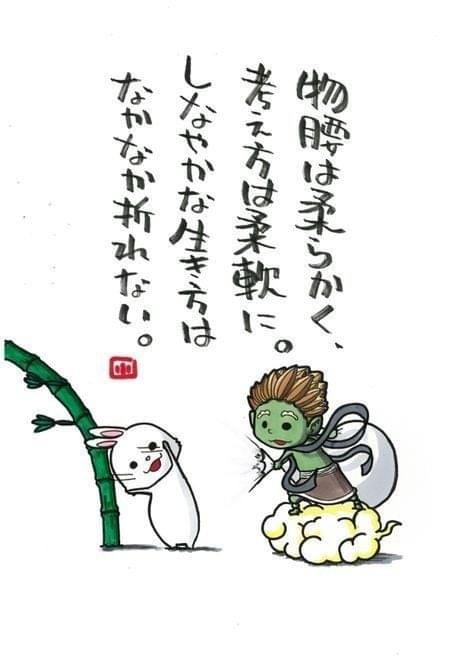 物腰は柔らかく、
考え方は柔軟に。
しなやかな生き方は
なかなか折れない。